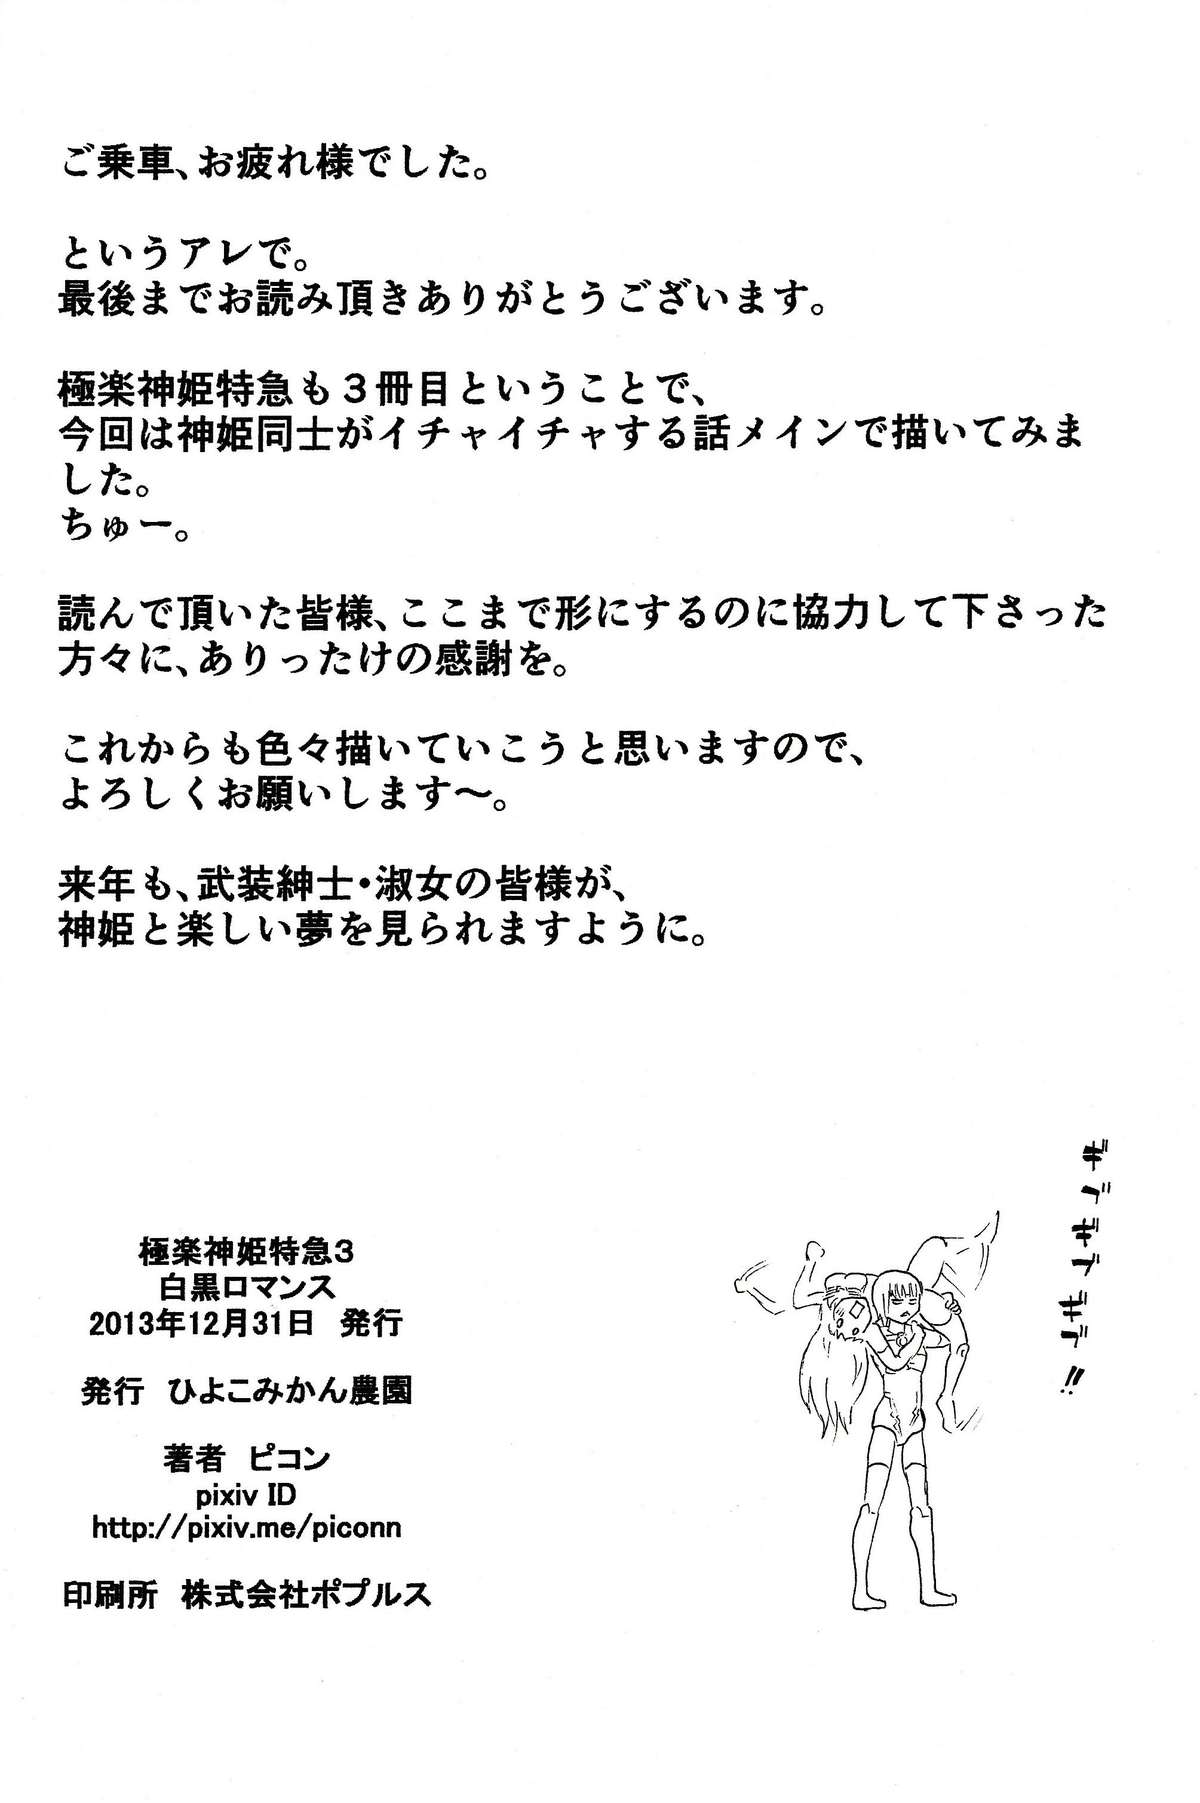 ご乗車、お疲れ様でした。
というアレで。
最後までお読み頂きありがとうございます。
極楽神姫特急も３冊目ということで、
今回は神姫同士がイチャイチャする話メインで描いてみま
した。
ちゅー。
読んで頂いた皆様、ここまで形にするのに協力して下さった
方々に、ありったけの感謝を。
これからも色々描いていこうと思いますので、
よろしくお願いします～。
来年も、武装紳士・淑女の皆様が、
神姫と楽しい夢を見られますように。
ギブギブギブ!!
極楽神姫特急3
白黒ロマンス
2013年12月31日　発行
発行　ひよこみかん農園
著者　ピコン
pixiv ID
http://pixiv.me/piconn
印刷所　株式会社ポプルス